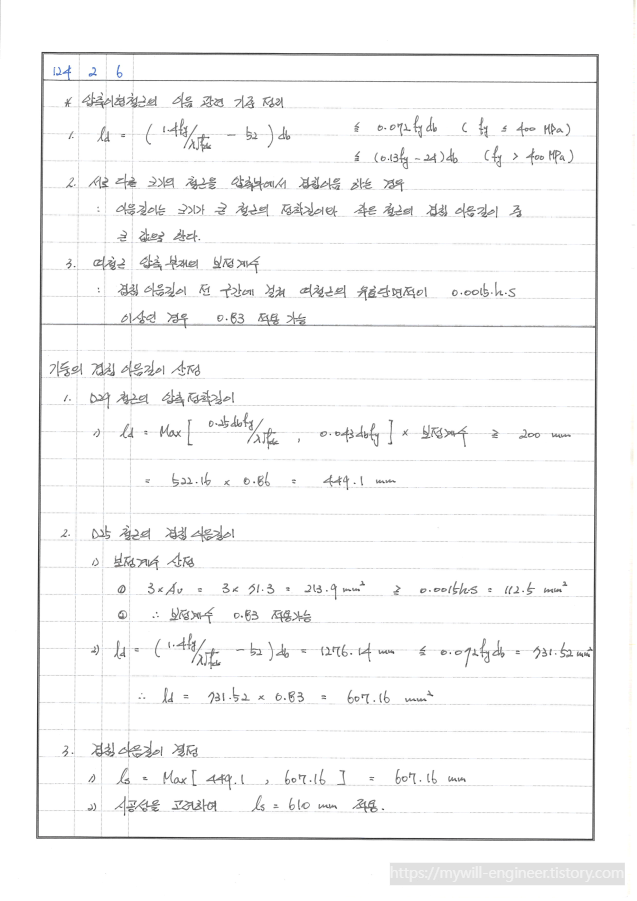 124 2 6
* 압축이형철근의 이음 관련 기준 정리
1. ld = ( 1.4fy/λ√fck - 52 ) db ≤ 0.072fydb ( fy ≤ 400 MPa)
≤ (0.13fy - 24)db (fy > 400 MPa)
2. 서로 다른 크기의 철근을 압축부에서 겹침이음 하는 경우
: 이음길이는 크기가 큰 철근의 정착길이와 작은 철근의 겹침 이음길이 중
큰 값으로 한다.
3. 띠철근 압축부재의 보정계수
: 겹침 이음길이 전 구간에 걸쳐 띠철근의 유효단면적이 0.0015.h.s
이상인 경우 0.83 적용 가능
기둥의 겹침 이음길이 산정
1. D29 철근의 압축정착길이
1) ld = Max [ 0.25dbfy/λ√fck , 0.043dbfy ] × 보정계수 ≥ 200 mm
= 522.16 × 0.86 = 449.1 mm
2. D25 철근의 겹침 이음길이
1) 보정계수 산정
① 3×Av = 3× 71.3 = 213.9 mm² ≥ 0.0015hs = 112.5 mm²
② ∴ 보정계수 0.83 적용가능
2) ld = ( 1.4fy/λ√fck - 52 ) db = 1276.14 mm ≤ 0.072fydb = 731.52 mm
∴ ld = 731.52 × 0.83 = 607.16 mm²
3. 겹침 이음길이 결정
1) ls = Max [ 449.1 , 607.16 ] = 607.16 mm
2) 시공성을 고려하여 ls = 610 mm 적용.
https://mywill-engineer.tistory.com